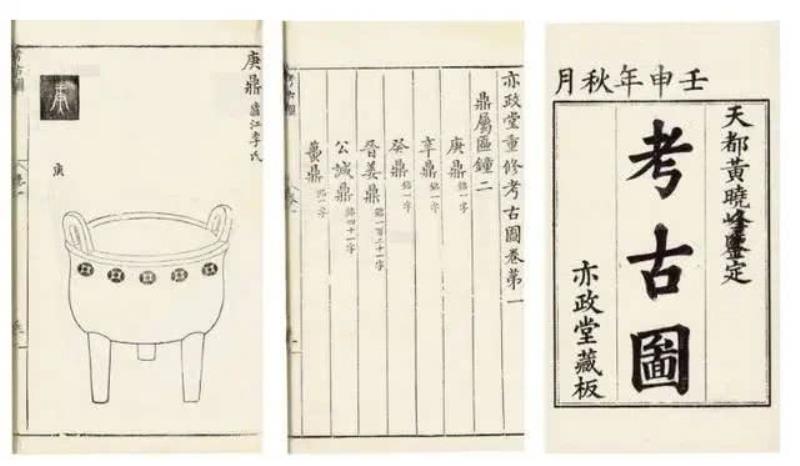 壬申年秋月
天都黃曉峰鑒定
考古圖
亦政堂藏板
亦政堂重修考古圖卷第一
鼎屬區鐘二
庚鼎 銘一字
辛鼎 銘一字
癸鼎 銘一字
晉姜鼎 銘一百二十一字
公諴鼎 銘四十一字
鼎 一字
考古圖
庚鼎 廬江李氏
庚
考古圖